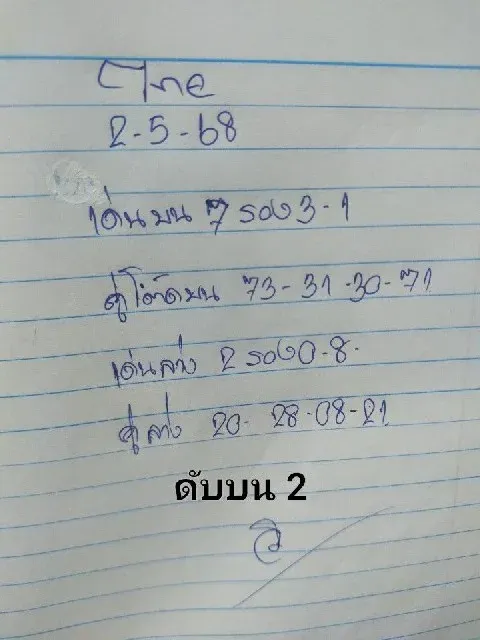 ไทย
2-5-68
เด่นบน 7 รอง 3-1
คู่โต๊ดบน 73-31-30-71
เด่นล่าง 2 รอง 0-8-
คู่ล่าง 20-28-08-21
ดับบน 2